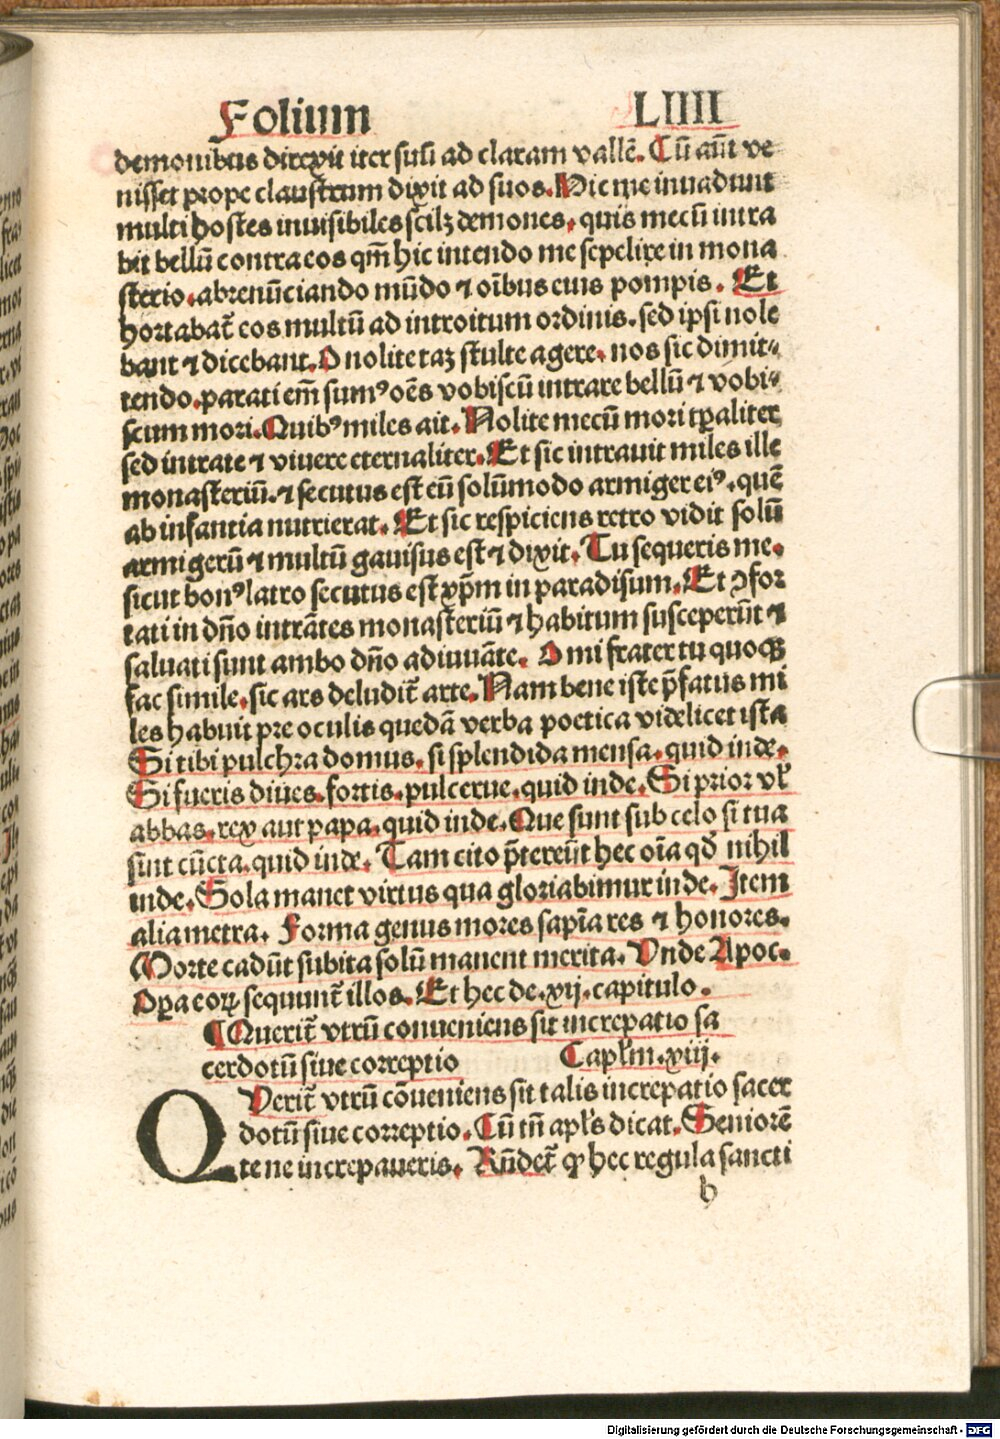 Folium LIIII
demonibus direxit iter suū ad claram vallē. Cū aūt ve
nisset prope claustrum dixit ad suos. Hic me inuadunt
multi hostes inuisibiles scilꝫ demones, quis mecū intra
bit bellū contra eos qm̄ hic intendo me sepelire in mona
sterio, abrenūciando mūdo ⁊ oībus euis pompis. Et
hortabat̄ eos multū ad introitum ordinis. sed ipsi nole
bant ⁊ dicebant. O nolite taꝫ stulte agere, nos sic dimit⸗
tendo, parati em̄ sumꝰ oēs vobiscū intrare bellū ⁊ vobi⸗
scum mori. Quibꝰ miles ait. Nolite mecū mori tꝑaliter
sed intrate ⁊ viuere eternaliter. Et sic intrauit miles ille
monasteriū. ⁊ secutus est eū solūmodo armiger eiꝰ. quē
ab infantia nutrierat. Et sic respiciens retro vidit solū
armigerū ⁊ multū gauisus est ⁊ dixit. Tu sequeris me.
sicut bonꝰ latro secutus est xp̄m in paradisum. Et ꝯfor
tati in dn̄o intrātes monasteriū ⁊ habitum susceperūt ⁊
saluati sunt ambo dn̄o adiuuāte. O mi frater tu quoqꝫ
fac simile, sic ars deludit̄ arte. Nam bene iste p̄fatus mi
les habuit pre oculis quedā verba poetica videlicet ista
Si tibi pulchra domus, si splendida mensa, quid inde.
Si fueris diues, fortis, pulcerue, quid inde. Si prior vl̓
abbas, rex aut papa, quid inde. Que sunt sub celo si tua
sint cūcta, quid inde. Tam cito p̄tereūt hec oīa qd̄ nihil
inde. Sola manet virtus qua gloriabimur inde. Item
alia metra. Forma genus mores sapīa res ⁊ honores.
Morte cadūt subita solū manent merita. Vnde Apoc.
Oꝑa eoꝝ sequunt̄ illos. Et hec de .xij. capitulo.
¶ Querit̄ vtrū conueniens sit increpatio sa
cerdotū siue correptio Capl̓m .xiij.
QVerit̄ vtrū cōueniens sit talis increpatio sacer
dotū siue correptio. Cū tn̄ apl̓s dicat. Seniorē
te ne increpaueris. Rn̄det̄ ꝙ hec regula sancti
h
Digitalisierung gefördert durch die Deutsche Forschungsgemeinschaft - DFG